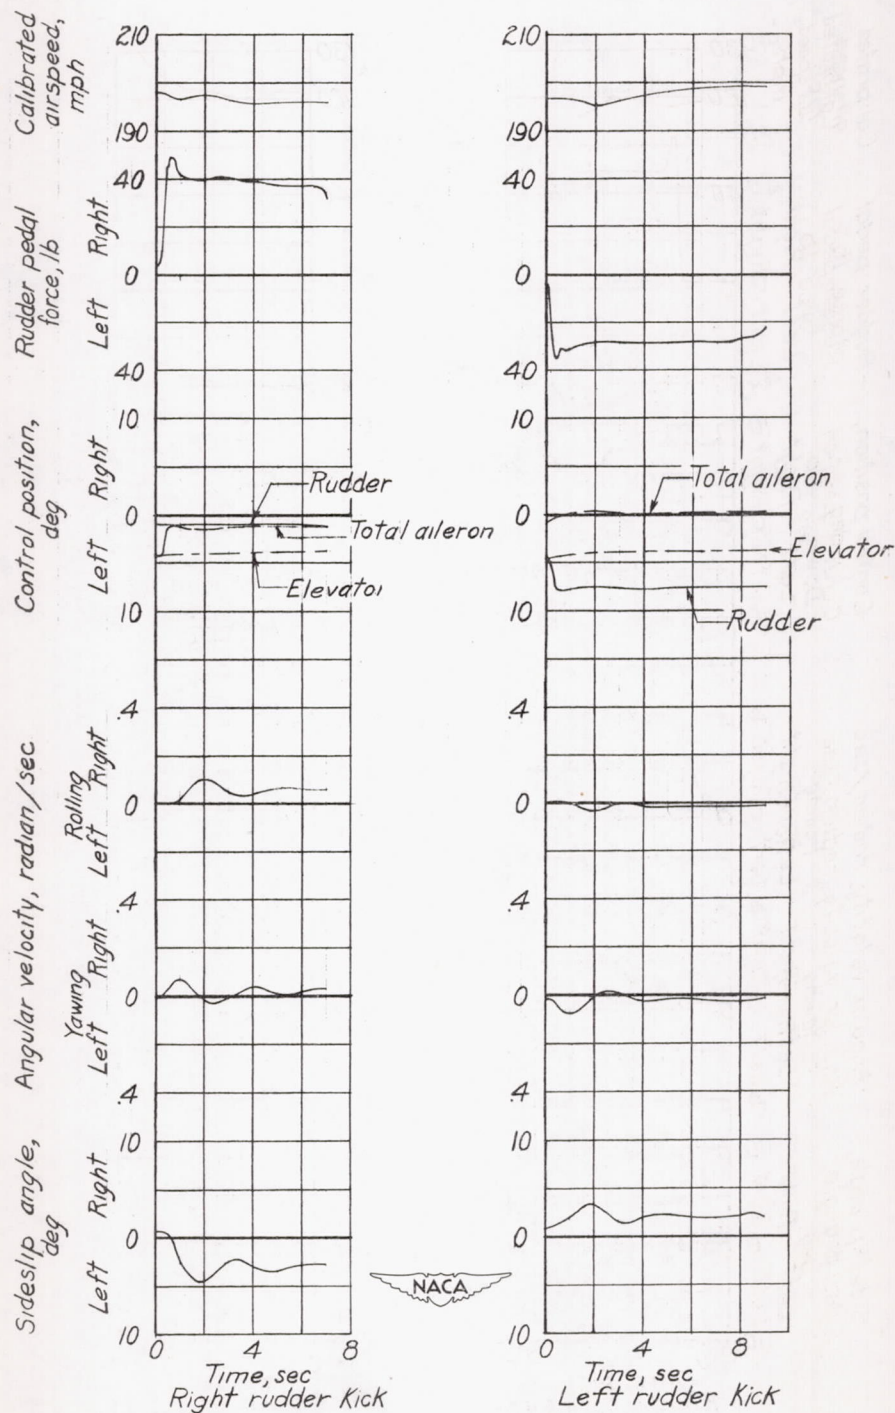 Calibrated
airspeed,
mph
210
190
Rudder pedal
force, lb
Left Right
40
0
40
Control position,
deg
Left Right
10
0
10
Rudder
Total aileron
Elevator
Angular velocity, radian/sec
Rolling
Left Right
.4
0
.4
Yawing
Left Right
0
.4
Sideslip angle,
deg
Left Right
10
0
10
0 4 8
Time, sec
Right rudder Kick
NACA
210
190
40
0
40
10
0
10
Total aileron
Elevator
Rudder
.4
0
.4
0
.4
10
0
10
0 4 8
Time, sec
Left rudder Kick